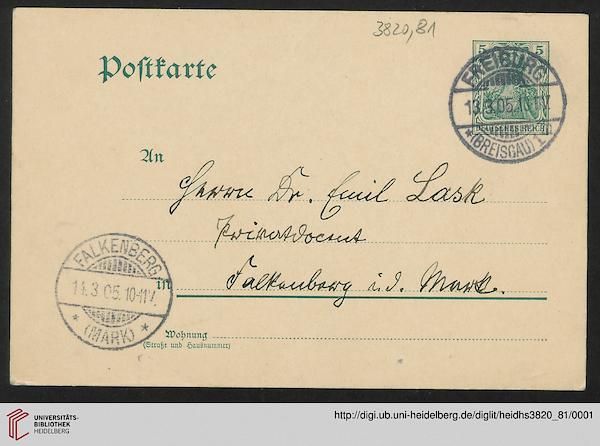 3820,81
Postkarte
5 5
DEUTSCHES REICH
FREIBURG
13.3.05.
*(BREISGAU) 1
An
Herrn Dr. Emil Lask
Privatdocent
in Falkenberg i. d. Mark.
FALKENBERG
14.3.05.10-11V.
* (MARK) *
Wohnung
(Straße und Hausnummer)
UNIVERSITÄTS-
BIBLIOTHEK
HEIDELBERG
http://digi.ub.uni-heidelberg.de/diglit/heidhs3820_81/0001